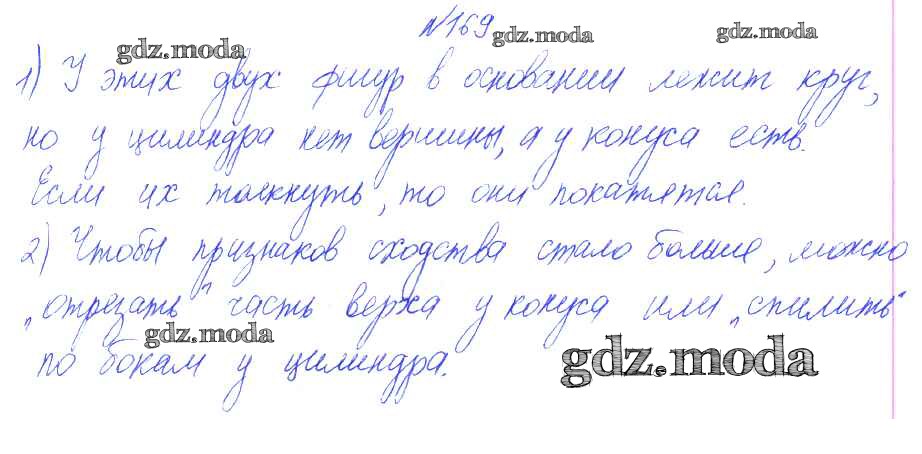 №169
gdz.moda gdz.moda gdz.moda
1) У этих двух фигур в основании лежит круг,
но у цилиндра нет вершины, а у конуса есть.
Если их толкнуть, то они покатятся.
2) Чтобы признаков сходства стало больше, можно
„отрезать" часть верха у конуса или „спилить"
gdz.moda
по бокам у цилиндра.
gdz.moda